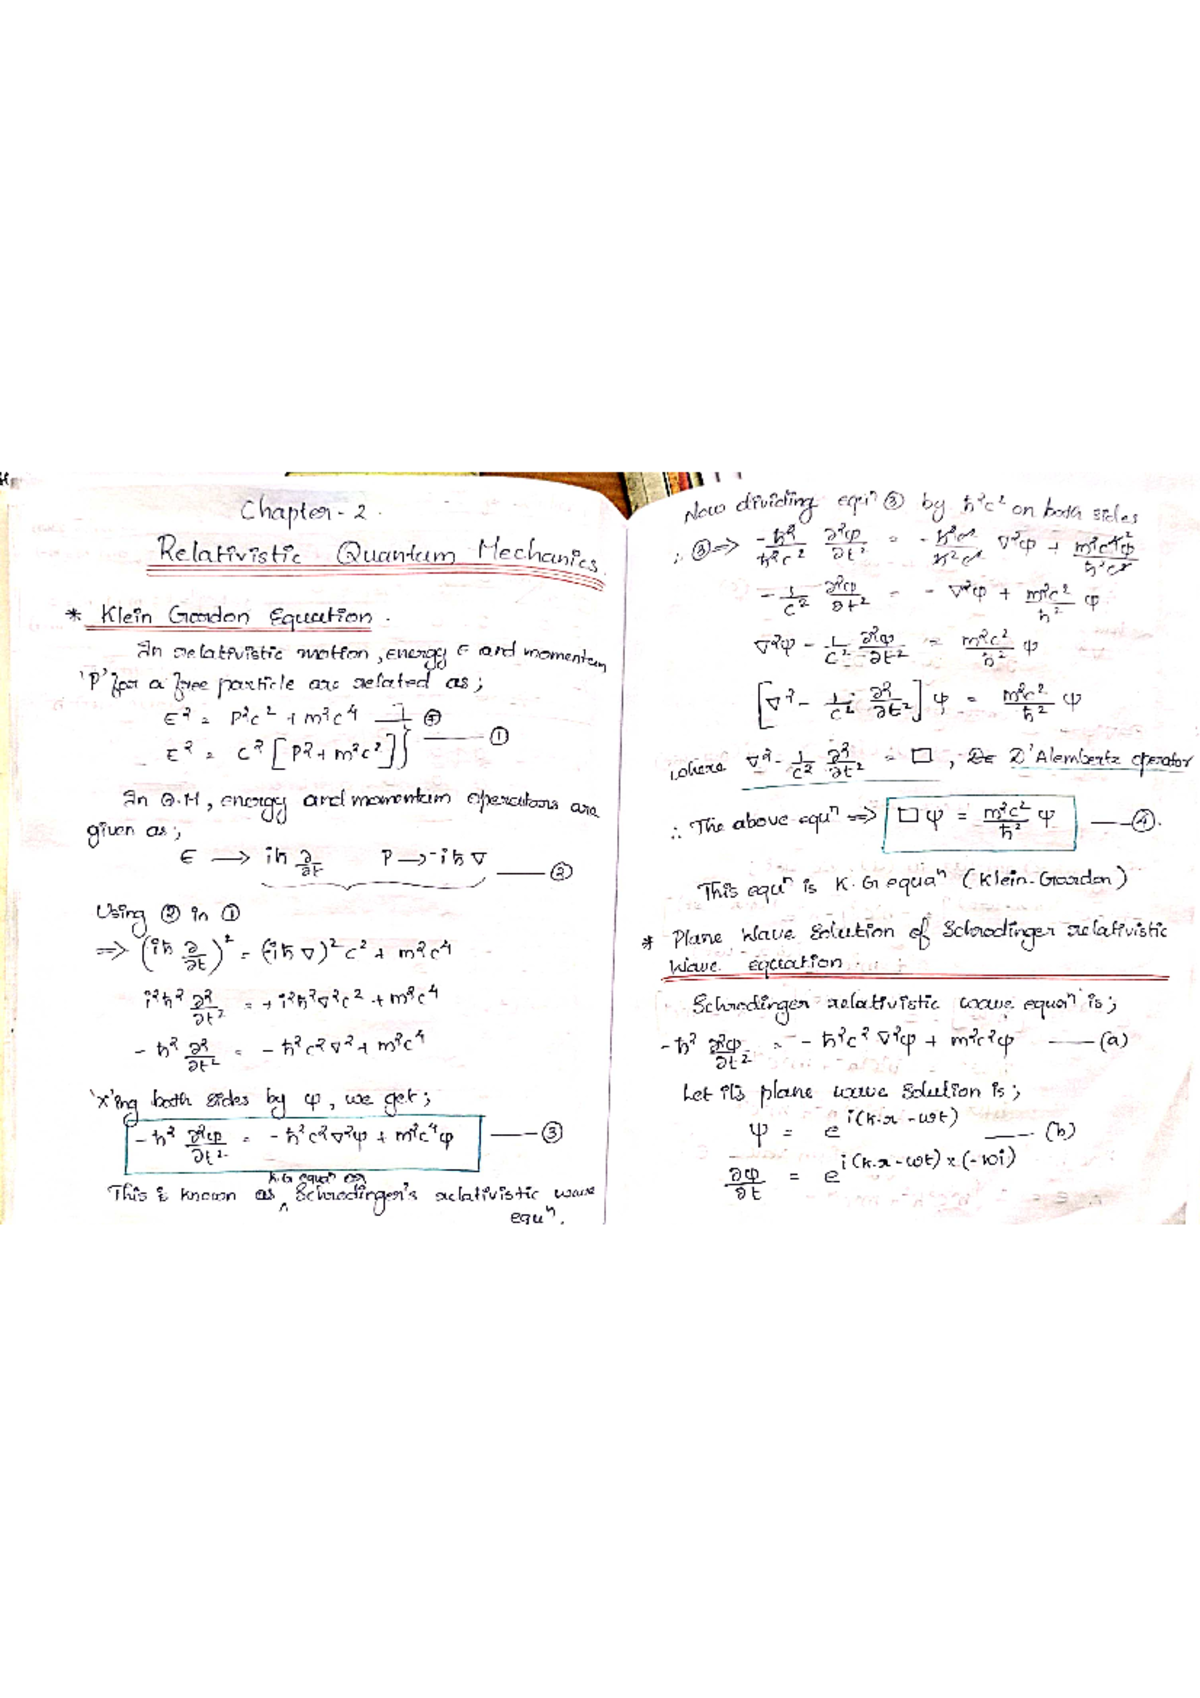 Chapter - 2.
Relativistic Quantum Mechanics.
* Klein Gordon Equation.
In relativistic motion, energy E and momentum
'P' for a free particle are related as;
E² = P²c² + m²c⁴
E² = c² [P² + m²c²]} —— ①
In Q.M, energy and momentum operators are
given as;
E → iħ ∂/∂t P → -iħ∇ —— ②
Using ② in ①
⇒ (iħ ∂/∂t)² = (-iħ∇)²c² + m²c⁴
i²ħ² ∂²/∂t² = + i²ħ²∇²c² + m²c⁴
-ħ² ∂²/∂t² = -ħ²c²∇² + m²c⁴
'x'ing both sides by φ, we get;
-ħ² ∂²φ/∂t² = -ħ²c²∇²φ + m²c⁴φ —— ③
This is known as K.G equaⁿ or Schrodinger's relativistic wave
equⁿ.
Now dividing equⁿ ③ by ħ²c² on both sides
∴ ③ ⇒ -ħ²/ħ²c² ∂²φ/∂t² = -ħ²c²/ħ²c² ∇²φ + m²c⁴φ/ħ²c²
-1/c² ∂²φ/∂t² = -∇²φ + m²c²/ħ² φ
∇²φ - 1/c² ∂²φ/∂t² = m²c²/ħ² φ
[∇² - 1/c² ∂²/∂t²] φ = m²c²/ħ² φ
where ∇² - 1/c² ∂²/∂t² = □, De D'Alembertz operator
∴ The above equⁿ ⇒ □φ = m²c²/ħ² φ —— ④.
This equⁿ is K.G equaⁿ (Klein-Gordon)
* Plane Wave Solution of Schrodinger relativistic
wave equation
Schrodinger relativistic wave equaⁿ is;
-ħ² ∂²φ/∂t² = -ħ²c²∇²φ + m²c²φ —— (a)
Let it's plane wave solution is;
ψ = e^i(k.x - ωt) —— (b)
∂φ/∂t = e^i(k.x - ωt) x (-ωi)